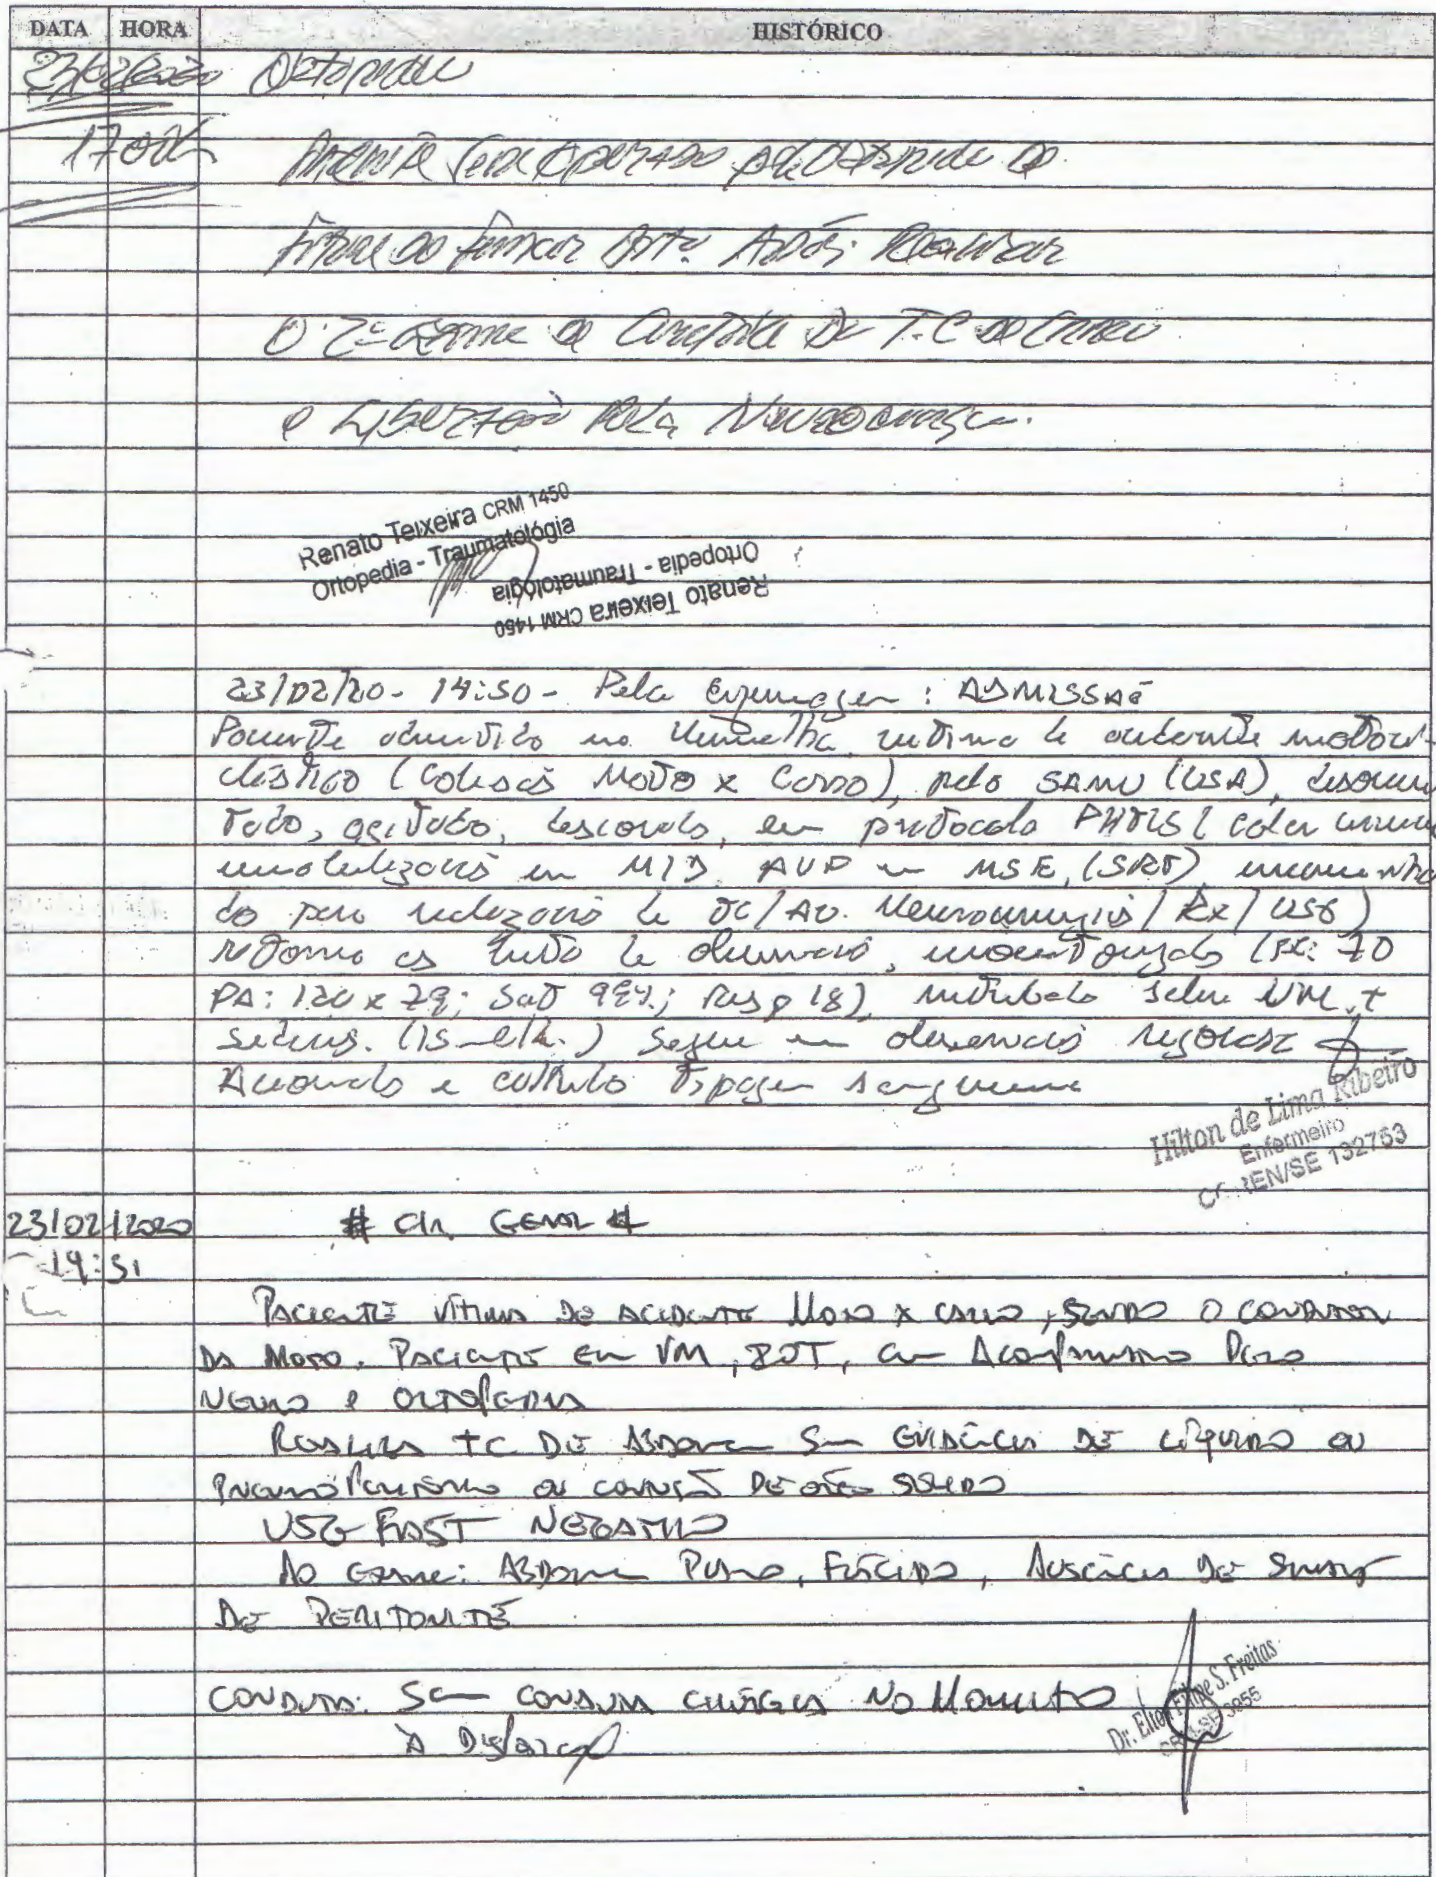 DATA HORA HISTÓRICO
23/02/2020 Ortopedia
17:00h Paciente será operado pela
do Fêmur Após Realizar
O 2º exame de Controle de T.C do Crânio
e Liberação Pela Neurocirurgia.
Renato Teixeira CRM 1450
Ortopedia - Traumatológia
Renato Teixeira CRM 1450
Ortopedia - Traumatológia
23/02/20 - 14:50 - Pela Enfermagem : ADMISSÃO
Paciente admitido na Vermelha, vítima de acidente motoci-
clístico (Colisão Moto x Carro), pelo SAMU (USA), desorien
tado, agitado, descorado, em protocolo PHTLS (colar
imobilização em MID, AVP em MSE, (SRT) encaminha
do para realização de TC/Av. Neurocirurgia/Rx/USG)
retorna ao leito de observação, monitorizado (FC: 70
PA: 120 x 79; Sat 99%; Resp 18), intubado sobre VM +
Segue em observação
e colhido tipagem sanguinea
Hilton de Lima Ribeiro
Enfermeiro
COREN/SE 132753
23/02/2020 # Cir. GERAL #
14:51
Paciente vítima de acidente Moto x carro, sendo o condutor
da Moto. Paciente em VM, IOT, com Acompanhamento Pela
Neuro e ortopedia
Realiza TC DE Abdome Sem evidência DE Líquido ou
pneumoperitônio ou contusão DE órgão sólido
USG FAST NEGATIVO
Ao Exame: Abdome Plano, Flácido, Ausência de Sinais
De PERITONITE
CONDUTA: Sem conduta cirúrgica No Momento
À Disposição
Dr. Elton Filipe S. Freitas
3955